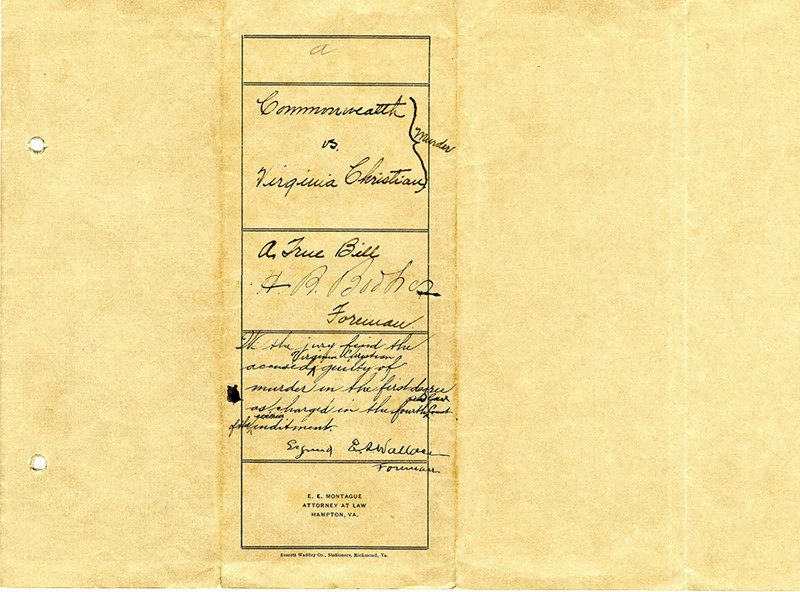 a
Commonwealth
vs.
Murder
Virginia Christian
A True Bill
H. R.
Foreman
We the jury find the
Virginia Christian
accused guilty of
murder in the first degree
as charged in the fourth Count
of the within inditment.
E. Wallace
Foreman
E. E. MONTAGUE
ATTORNEY AT LAW
HAMPTON, VA.
Everett Waddey Co., Stationers, Richmond, Va.